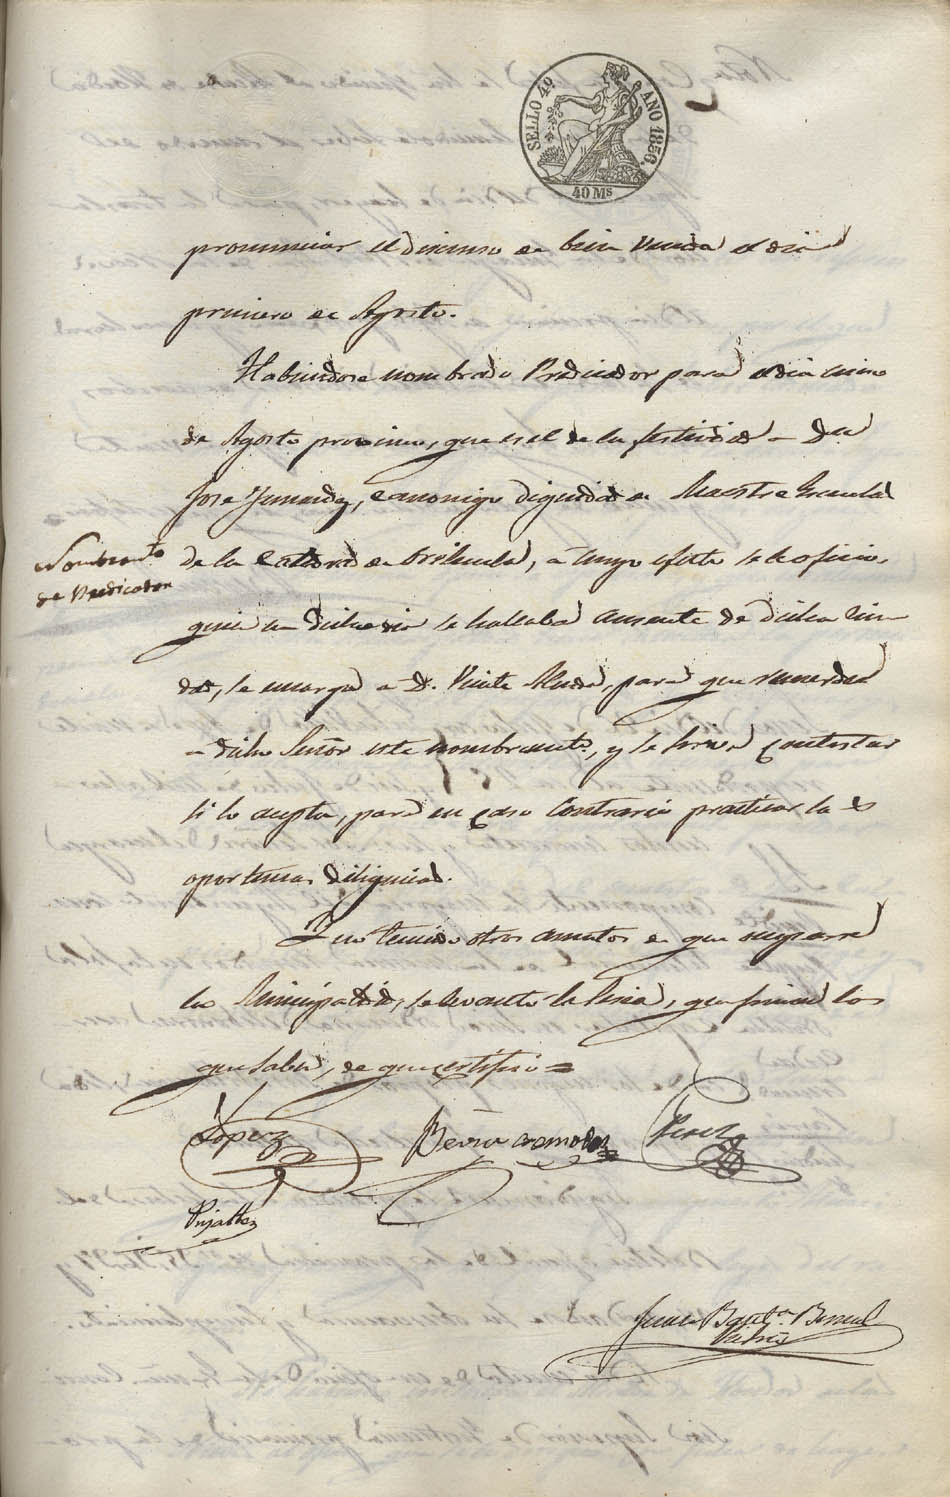 SELLO 4º
AÑO 1856.
40 Ms
pronunciar el discurso de bien venida el dia
primero de Agosto.
Habiendose nombrado Predicador para el dia cinco
de Agosto procsimo, que es el de la festividad a Dn
José Jimenez, Canonigo dignidad de Maestre Escuela
Nombramto
de Predicador
de la Catedral de Orihuela, a cuyo efecto se le ofició,
quien en dicho dia se hallaba ausente de dicha Ciu-
dad, se encarga a D. Vicente para que recuerde
a dicho Señor este nombramto, y se sirva contestar
si lo acepta, para en caso contrario practicar las
oportunas diligencias.
Y no teniendo otros asuntos de que ocuparse
la Municipalidad, se levantó la Sesion, que firman los
que saben, de que certifico =
Lopez
Perez
Pujalte
Juan Bauta Bernal